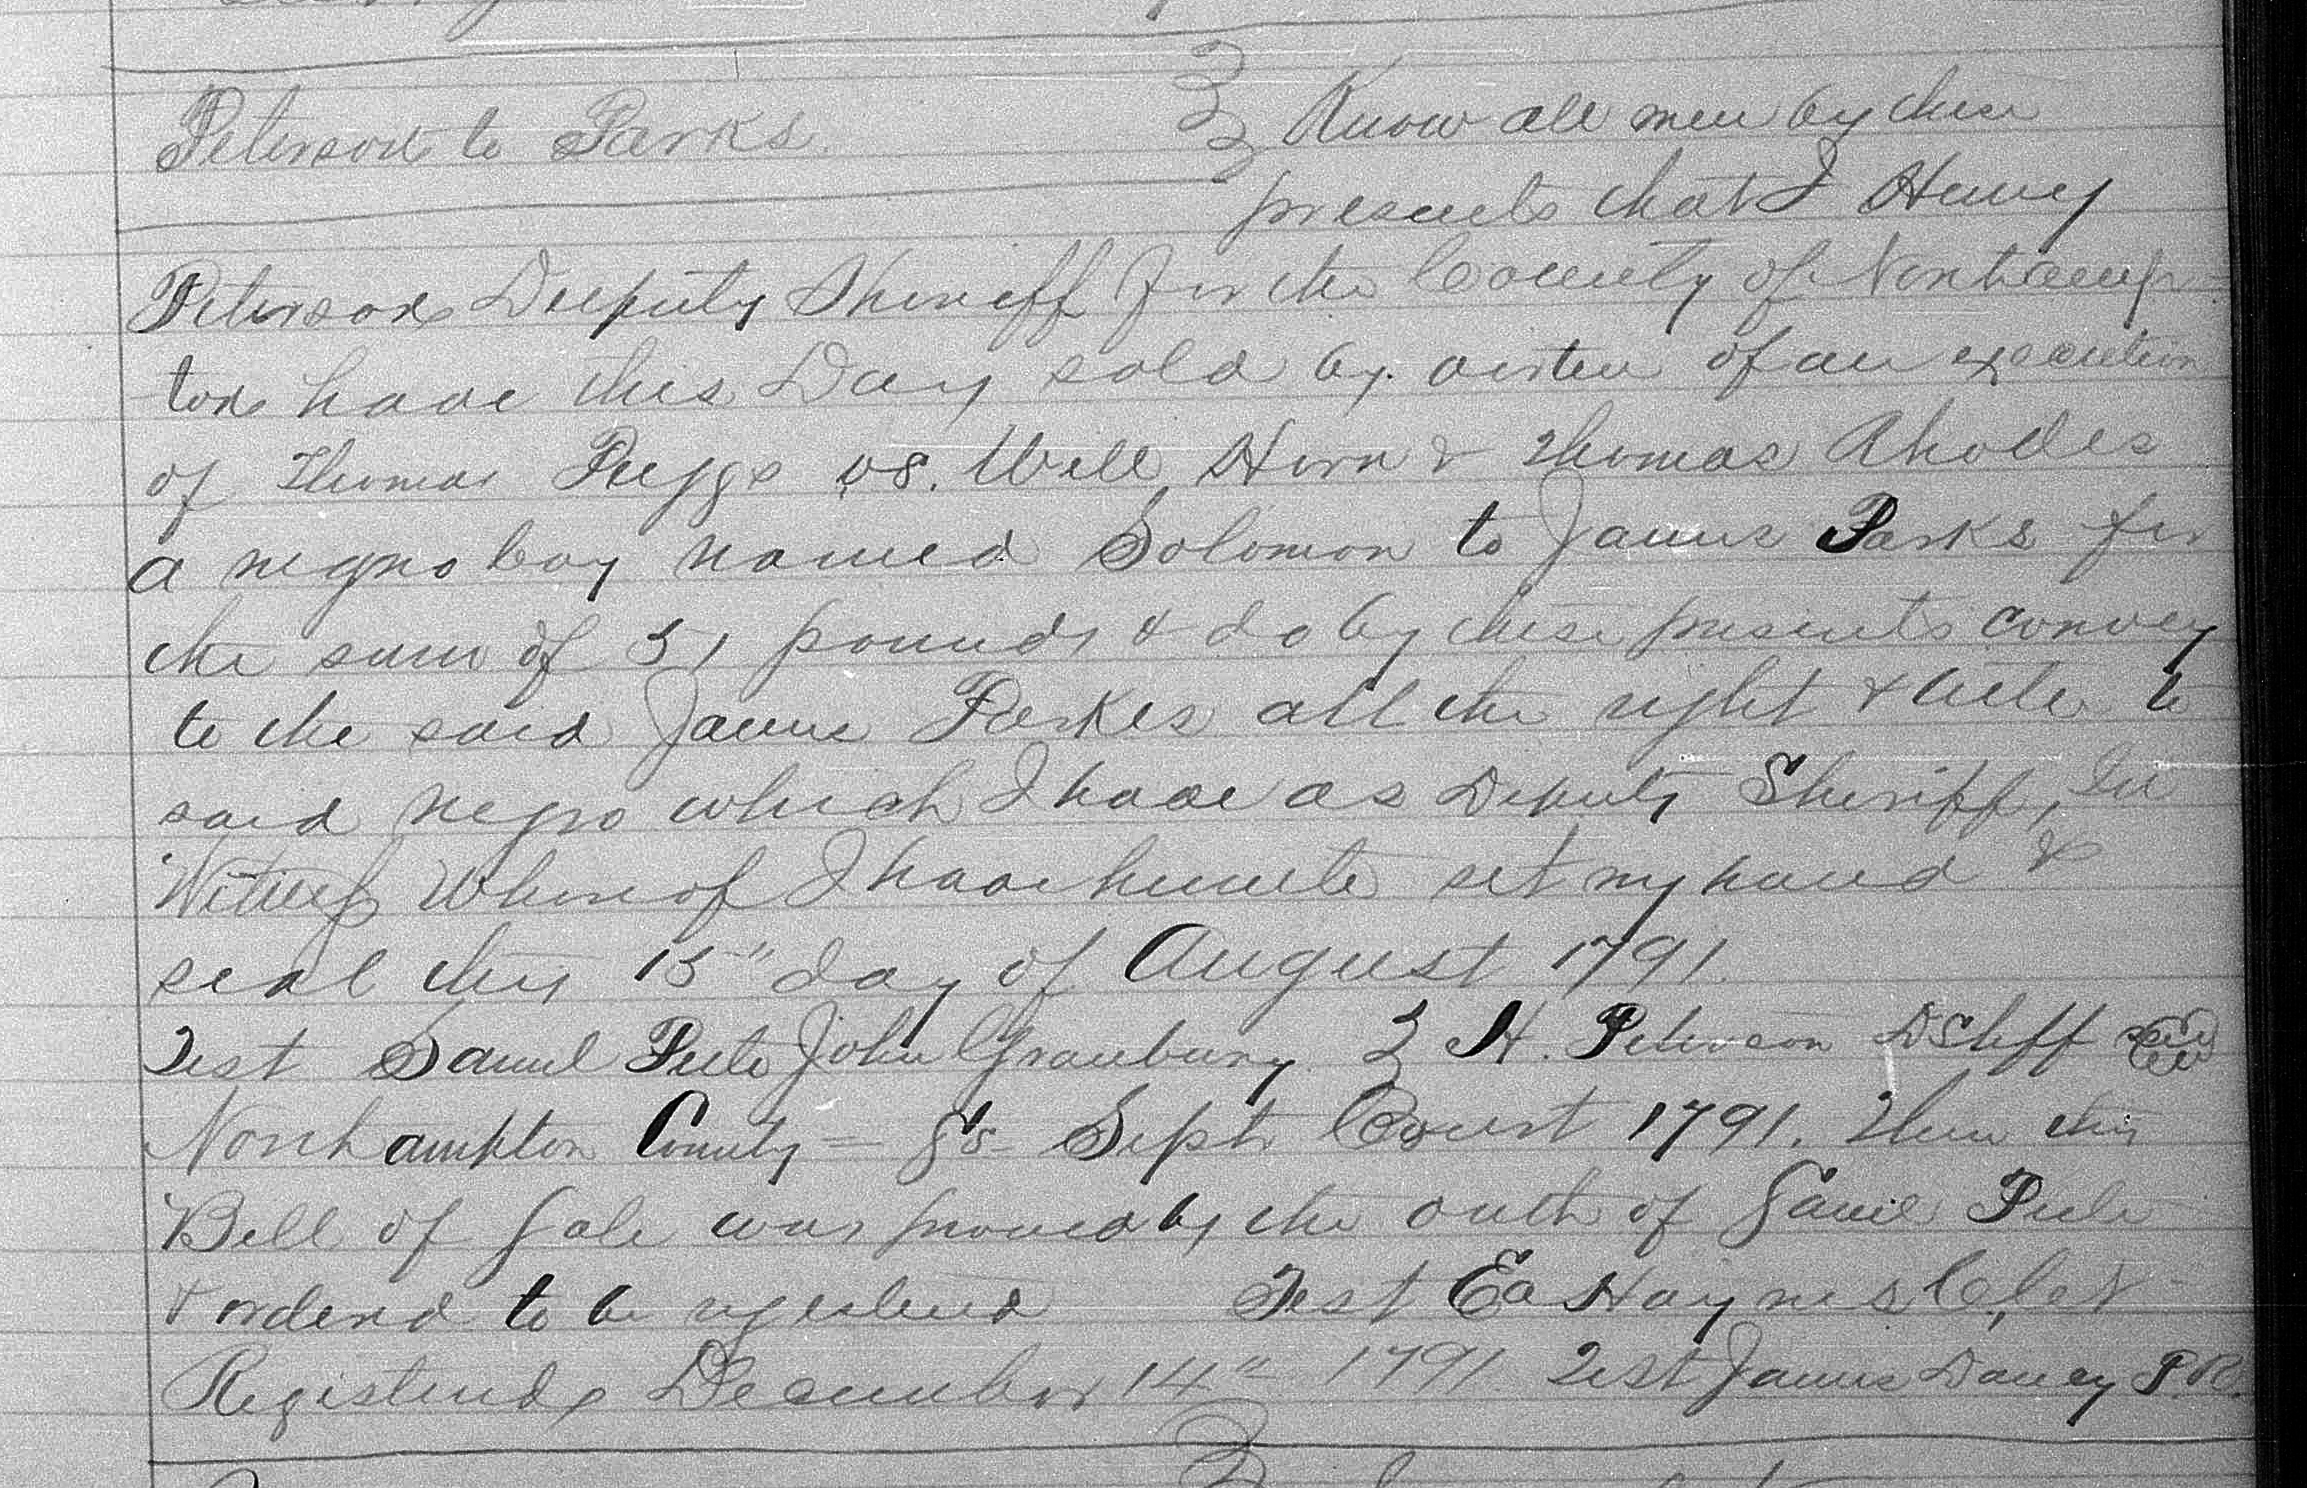 Peterson to Parks. Know all men by these
presents that I Henry
Peterson Deeputy Sheriff for the County of Northamp-
ton have this Day sold by virtue of an execution
of Thomas vs. Will Horn & Thomas Rhodes
a negro boy named Solomon to James Parks for
the sum of 51 pounds & do by these presents convey
to the said James Parkes all the right & title to
said negro which I have as Deputy Sheriff, In
Witness Whereof I have hereunto set my hand &
seal this 15" day of August 1791.
Test Samuel Peete John Granbury H. Peterson DShff Seal
Northampton County = Ss- Sept Court 1791. Then this
Bill of Sale was proved by the oath of Saml Peete
& ordered to be registered Test Ea Haynes Clct
Registered December 14" 1791 Test James Dancy P.R.